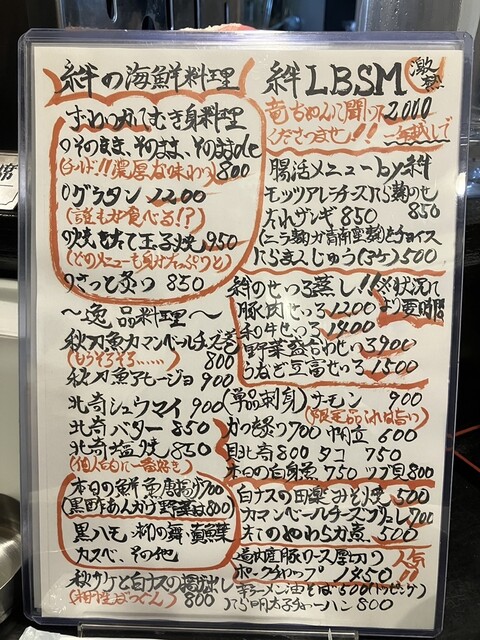 絆の海鮮料理
ずわいがにむき身料理
○そのまま、そのまま、そのままde
(チーバ!!濃厚な味わい) 800
○グラタン 1200
(誰もが食べる!?)
○焼きたて玉子焼 950
(どのメニューも身がたっぷりっと)
○さっと炙り 850
〜逸品料理〜
秋刀魚カマンベールチーズ巻
(もうそろそろ……) 800
秋刀魚アヒージョ 900
北寄シュウマイ 900
北寄バター 850
北寄塩焼 850
(個人的に一番好き)
本日の鮮魚唐揚げ 700
(黒酢あんかけ野菜は800)
黒ハモ、柳の舞、真鱈
カスベ、その他
秋サケと白ナスの揚げ出し
(相性ばつぐん) 800
絆LBSM 激熱
竜ちゃんに聞いて 2000
くださいませ!!
腸活メニューby絆
モッツァレラチーズにら麹のせ 850
たれザンギ 850
(ニラ麹か青南蛮麹をチョイス
にらまんじゅう(3ケ) 500
絆のせいろ蒸し!! ※状況により要時間
豚肉せいろ 1200
和牛せいろ 1400
野菜盛合わせいろ 900
うなぎ豆富せいろ 1500
(単品刺身) サーモン 900
(限定品これは旨い)
かつお炙り 700 帆立 600
北寄 800 タコ 750
本日の白身魚 750 ツブ貝 800
白ナスの田楽みそ焼 500
カマンベールチーズブリュレ 700
たてのやわらか煮 500
道内産豚ロース厚切り 人気!!
ポークチャップ 1450
辛ラーメン油そば 500 (トッピング)
にら明太子チャーハン 800